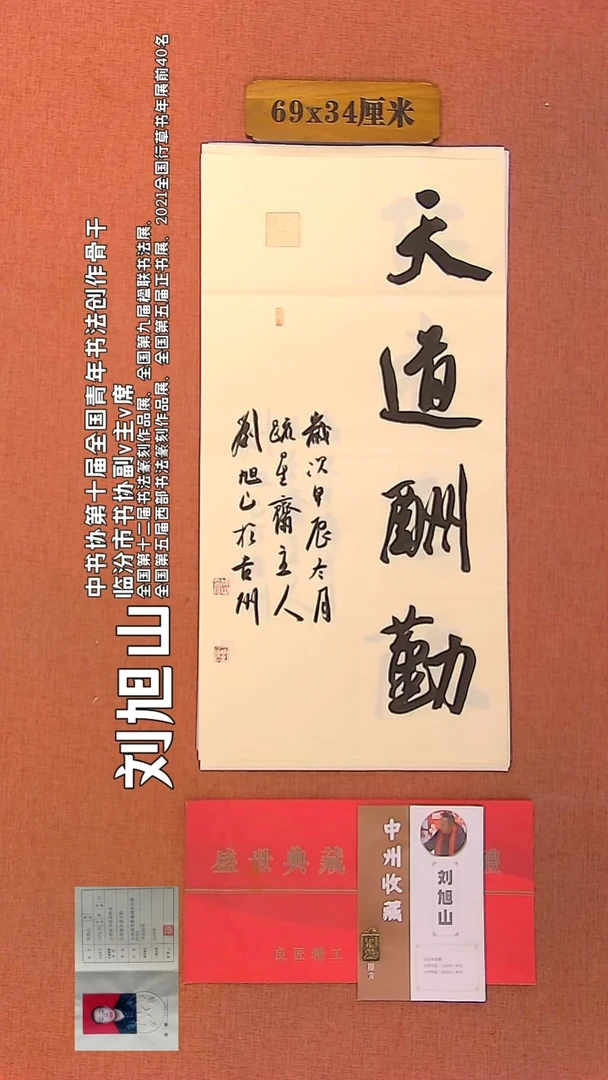 69x34厘米
天道酬勤
歲次甲辰六月
疏星齋主人
劉旭山於古州
刘旭山
中书协第十届全国青年书法创作骨干
临汾市书协副v主v席
全国第十二届书法篆刻作品展、全国第九届楹联书法展、
全国第五届西部书法篆刻作品展、全国第五届正书展、2021全国行草书年展前40名
盛世典藏
禮
良匠精工
中州收藏
刘旭山